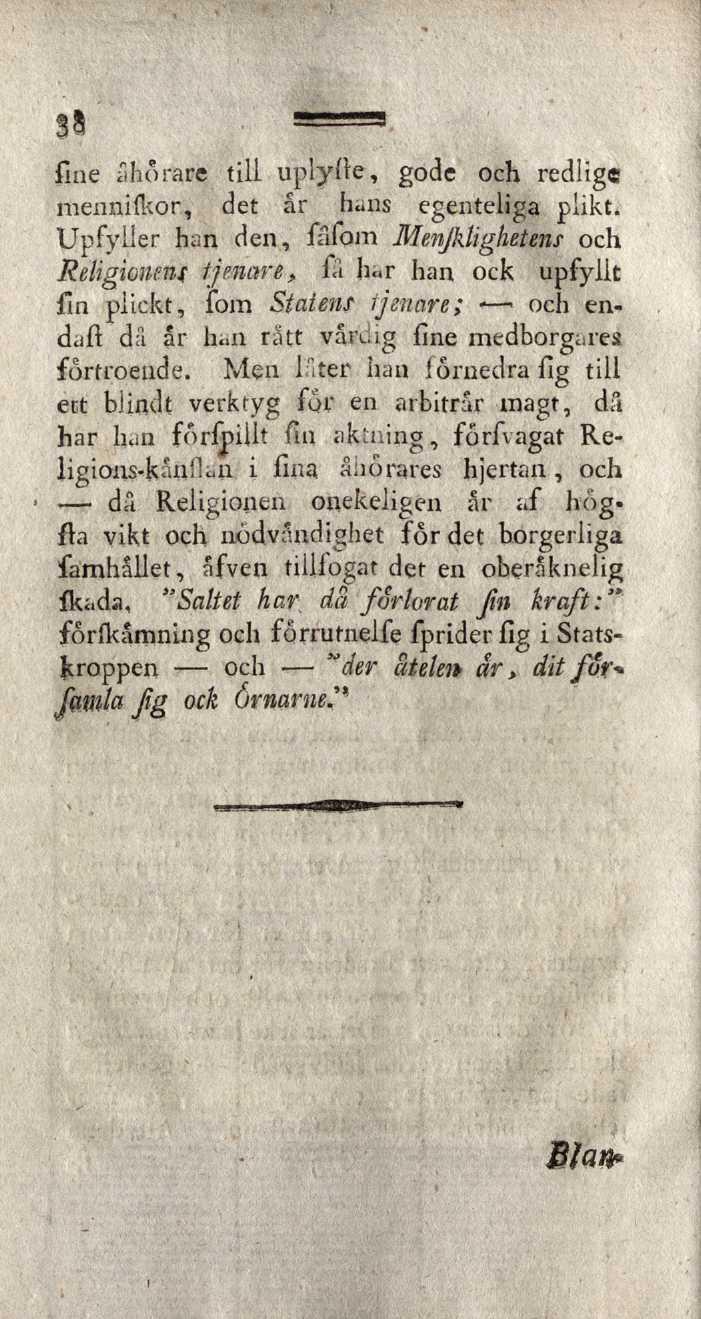 38
ſine åhörare till uplyſte, gode och redlige
menniſkor, det år hans egenteliga plikt.
Upfyller han den, ſåſom Menſklighetens och
Religionens tjenare, ſå har han ock upfyllt
ſin plickt, ſom Statens tjenare; — och en-
daſt då år han rått vårdig ſine medborgares
förtroende. Men låter han förnedra ſig till
ett blindt verktyg för en arbitrår magt, då
har han förſpillt ſin aktning, förſvagat Re-
ligions-kånſlan i ſina åhörares hjertan, och
— då Religionen onekeligen år af hög-
ſta vikt och nödvåndighet för det borgerliga
ſamhållet, åfven tillfogat det en oberåknelig
ſkada. "Saltet har då förlorat ſin kraft:"
förſkåmning och förrutnelſe ſprider ſig i Stats-
kroppen — och — "der åtelen år, dit för-
ſamla ſig ock Örnarne."
Blan-